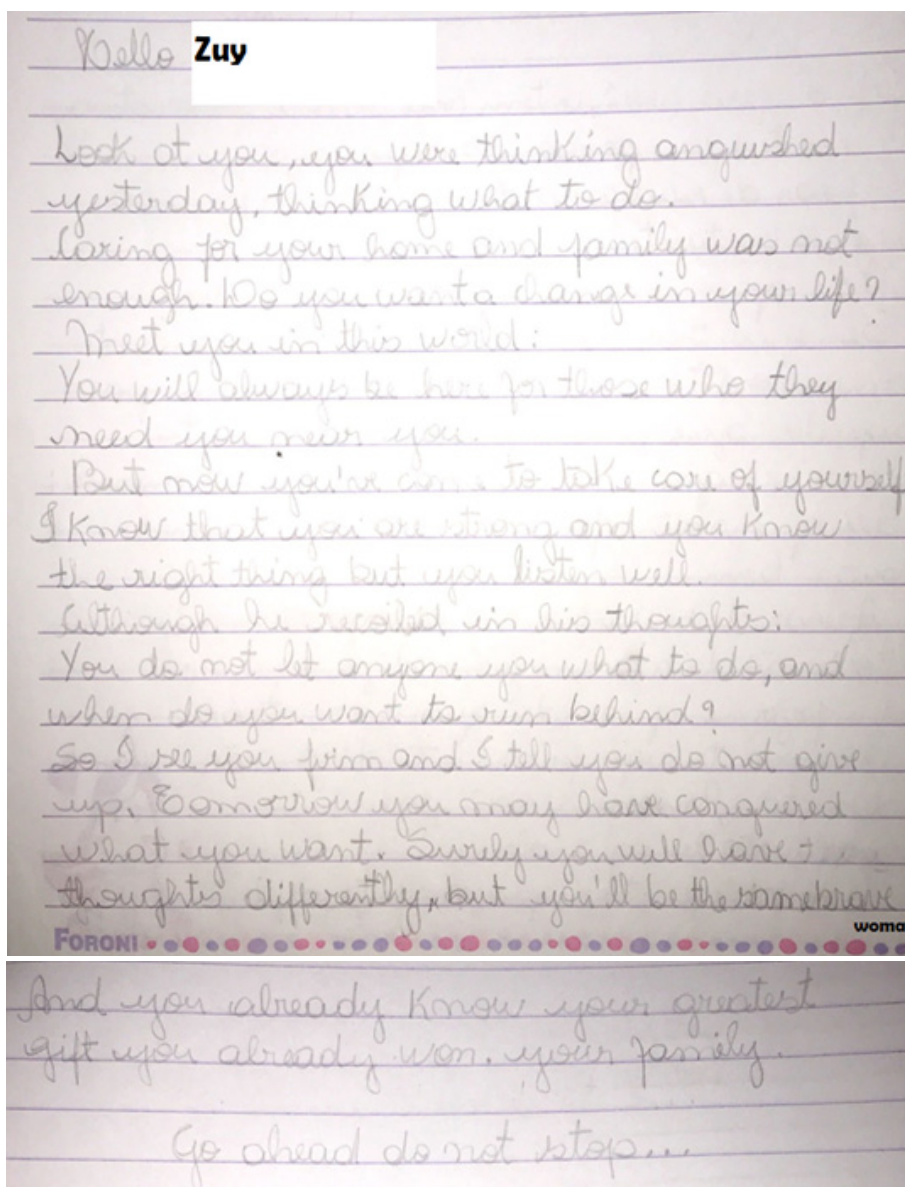 Hello Zuy
Look at you, you were thinking anguished
yesterday, thinking what to do.
Caring for your home and family was not
enough. Do you want a change in your life?
Meet you in this world:
You will always be here for those who they
need you near you.
But now you've come to take care of yourself
I know that you are strong and you know
the right thing but you listen well.
Although he recoiled in his thoughts:
You do not let anyone you what to do, and
when do you want to run behind?
So I see you firm and I tell you do not give
up. Tomorrow you may have conquered
what you want. Surely you will have
thoughts differently, but you'll be the same brave
woma
FORONI
And you already know your greatest
gift you already won. your family.
Go ahead do not stop...